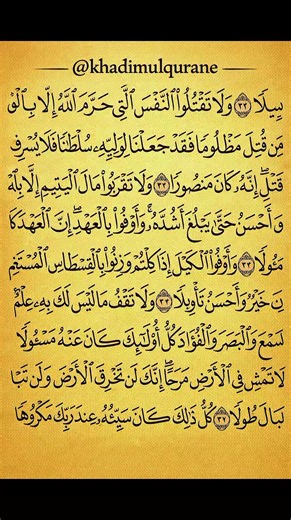 — @khadimulqurane —
سِيلًا ٣٢ وَلَا تَقْتُلُوا۟ النَّفْسَ الَّتِى حَرَّمَ اللَّهُ إِلَّا بِالْ
مَن قُتِلَ مَظْلُومًا فَقَدْ جَعَلْنَا لِوَلِيِّهِۦ سُلْطَٰنًا فَلَا يُسْرِف
قَتْلِ ۖ إِنَّهُۥ كَانَ مَنصُورًا ٣٢ وَلَا تَقْرَبُوا۟ مَالَ الْيَتِيمِ إِلَّا بِالَّ
أَحْسَنُ حَتَّىٰ يَبْلُغَ أَشُدَّهُۥ ۚ وَأَوْفُوا۟ بِالْعَهْدِ ۖ إِنَّ الْعَهْدَ كَا
ئُولًا ٣٢ وَأَوْفُوا۟ الْكَيْلَ إِذَا كِلْتُمْ وَزِنُوا۟ بِالْقِسْطَاسِ الْمُسْتَقِ
خَيْرٌ وَأَحْسَنُ تَأْوِيلًا ٣٢ وَلَا تَقْفُ مَا لَيْسَ لَكَ بِهِۦ عِلْمٌ
سَّمْعَ وَالْبَصَرَ وَالْفُؤَادَ كُلُّ أُو۟لَٰٓئِكَ كَانَ عَنْهُ مَسْـُٔولًا
لَا تَمْشِ فِى الْأَرْضِ مَرَحًا ۖ إِنَّكَ لَن تَخْرِقَ الْأَرْضَ وَلَن تَبْ
لْجِبَالَ طُولًا ٣٢ كُلُّ ذَٰلِكَ كَانَ سَيِّئُهُۥ عِندَ رَبِّكَ مَكْرُوهًا